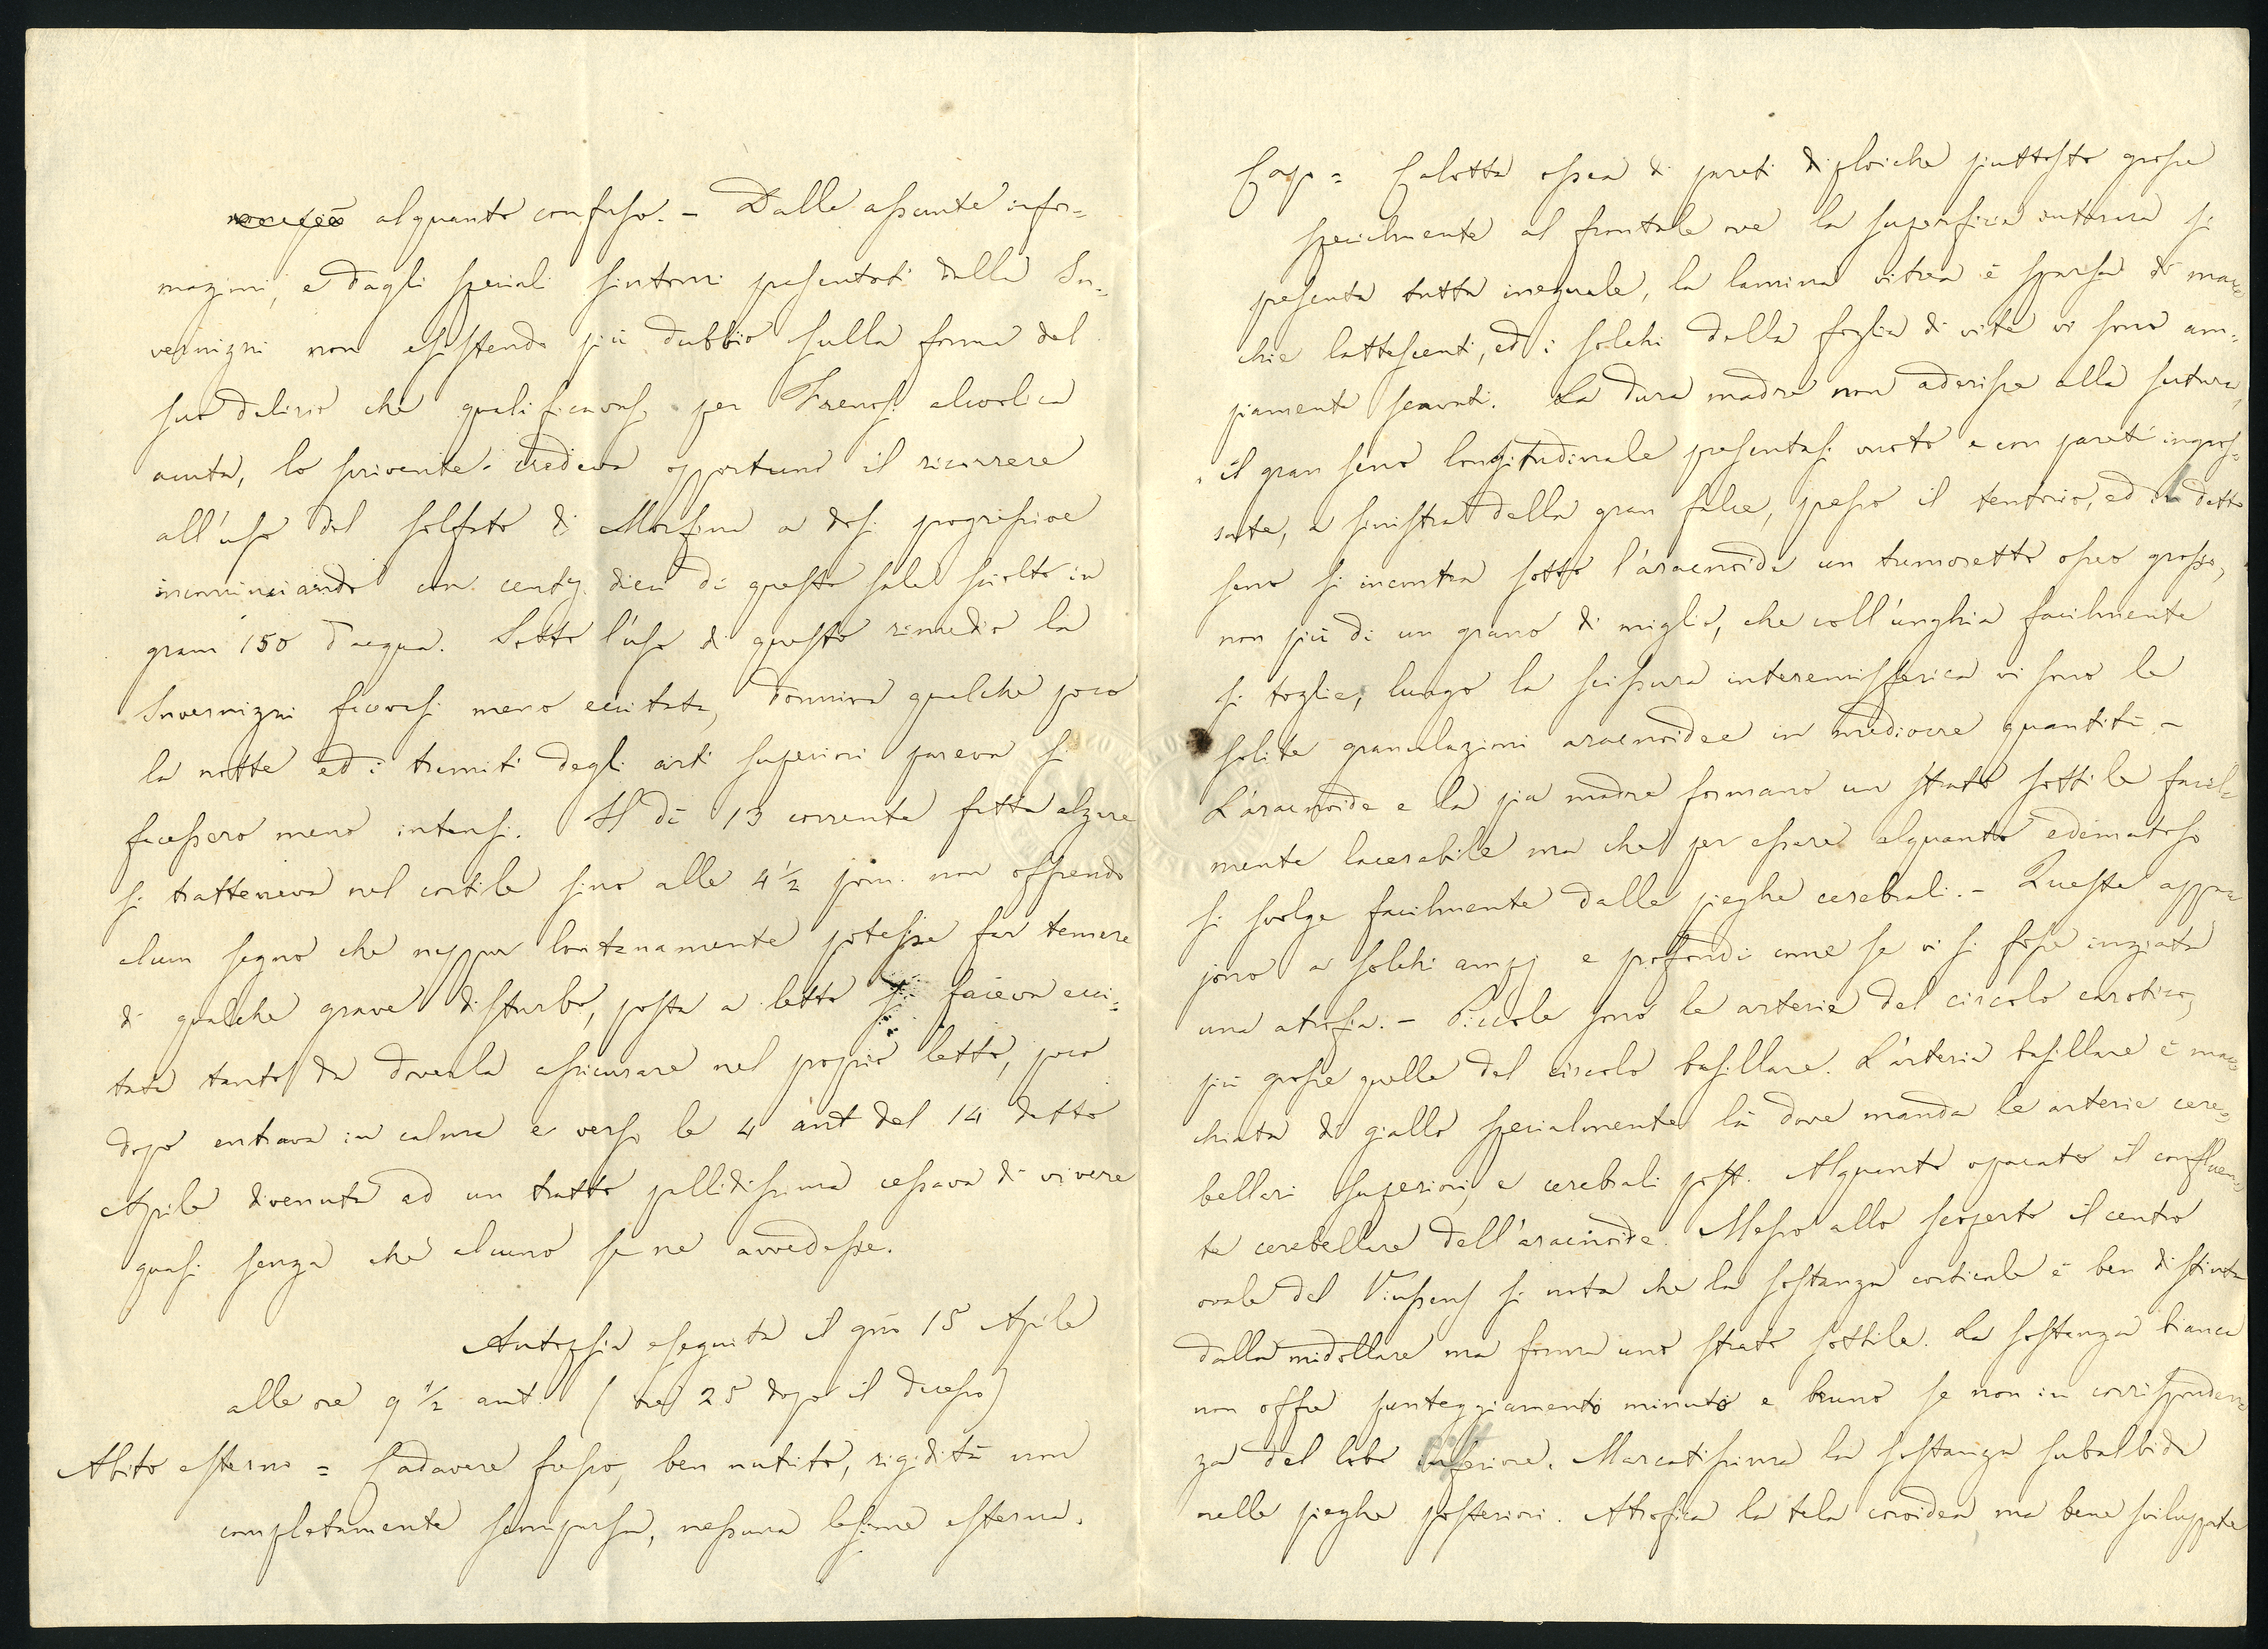 alquanto confuso. - Dalle assunte infor=
mazioni, e dagli speciali sintomi presentati dalla In=
vernizzi non esistendo più dubbio sulla forma del
suo delirio che qualificavasi per Frenosi alcoolica
acuta, lo scrivente credeva opportuno il ricorrere
all'uso del solfato di Morfina a dosi progressive
incominciando con centig. dieci di questo sale sciolto in
gram 150 d'acqua. Sotto l'uso di questo rimedio la
Invernizzi facevasi meno eccitata, dormiva qualche poco
la notte ed i tremiti degli arti superiori pareva si
facessero meno intensi. Il dì 13 corrente fatta alzare
si tratteneva nel cortile sino alle 4 1/2 pom. non offrendo
alcun segno che neppur lontanamente potesse far temere
di qualche grave disturbo, posta a letto si faceva ecci=
tata tanto da doverla assicurare nel proprio letto, poco
dopo entrava in calma e verso le 4 ant del 14 detto
Aprile divenuta ad un tratto pallidissima cessava di vivere
quasi senza che alcuno se ne avvedesse.
Autopsia eseguita il gno 15 Aprile
alle ore 9 1/2 ant. (ore 25 dopo il decesso)
Abito esterno = Cadavere fresco, ben nutrito, rigidità non
completamente scomparsa, nessuna lesione esterna.
Capo = Calotta ossea di pareti diploiche piuttosto grosse
specialmente al frontale ove la superficie interna si
presenta tutta ineguale, la lamina vitrea è sparsa di mac=
chie lattescenti, ed i solchi della foglia di vite vi sono am=
piamente scavati. La dura madre non aderisce alla sutura,
il gran seno longitudinale presentasi vuoto e con pareti ingros=
sate, a sinistra della gran falce, presso il tentorio, ed in detto
seno si incontra sotto l'aracnoide un tumoretto osseo grosso,
non più di un grano di miglio, che coll'unghia facilmente
si toglie; lungo la scissura interemisferica vi sono le
solite granulazioni aracnoidee in mediocre quantità -
L'aracnoide e la pia madre formano un strato sottile facil=
mente lacerabile ma che per essere alquanto edematoso
si svolge facilmente dalle pieghe cerebrali. - Queste appa=
jono a solchi ampj e profondi come se vi si fosse iniziata
una atrofia. - Piccole sono le arterie del circolo carotico,
più grosse quelle del circolo basillare. L'arteria basillare è mac=
chiata di giallo specialmente là dove manda le arterie cere=
bellari superiori, e cerebrali post. Alquanto opacato il confluen=
te cerebellare dell'aracnoide. Messo allo scoperto il centro
ovale del Vieussens si nota che la sostanza corticale è ben distinta
dalla midollare ma forma uno strato sottile. La sostanza bianca
non offre punteggiamento minuto e bruno se non in corrisponden=
za del lobo inferiore. Marcatissima la sostanza subalbida
nelle pieghe posteriori. Atrofica la tela coroidea ma bene sviluppate